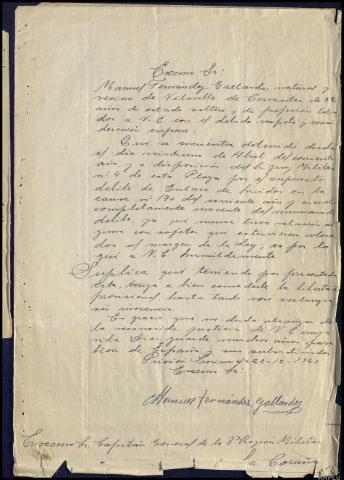 Excmo Sr:
Manuel Fernandez Gallardo, natural y
vecino de Vilarille de Cervantes de
años de estado soltero y de profesión labra
dor a V.E con el debido respeto y con
sideración expone:
Que se encuentra detenido desde
el dia veintiuno de Abril del corriente
año y a disposición del Juez Militar
nº 4 de esta Plaza por el supuesto
delito de Enlace de huidos en la
causa nº 170 del corriente año y siendo
completamente inocente del mencionado
delito, ya que nunca tuvo relación al
guna con sujetos que estuvieran coloca
dos al margen de la Ley; es por lo
que a V.E humildemente
Suplica que teniendo por presentada
esta, tenga a bien concederle la libertad
provisional hasta tanto
su inocencia.
Es gracia que no duda alcanzar de
la reconocida justicia de V.E cuya
vida Dios guarde muchos años para
bien de España y sus subordinados
Prisión 22-12-194
Excmo Sr:
Manuel Fernandez Gallardo
Excemo Sr. Capitán General de la 8ª Región Militar
La Coruña